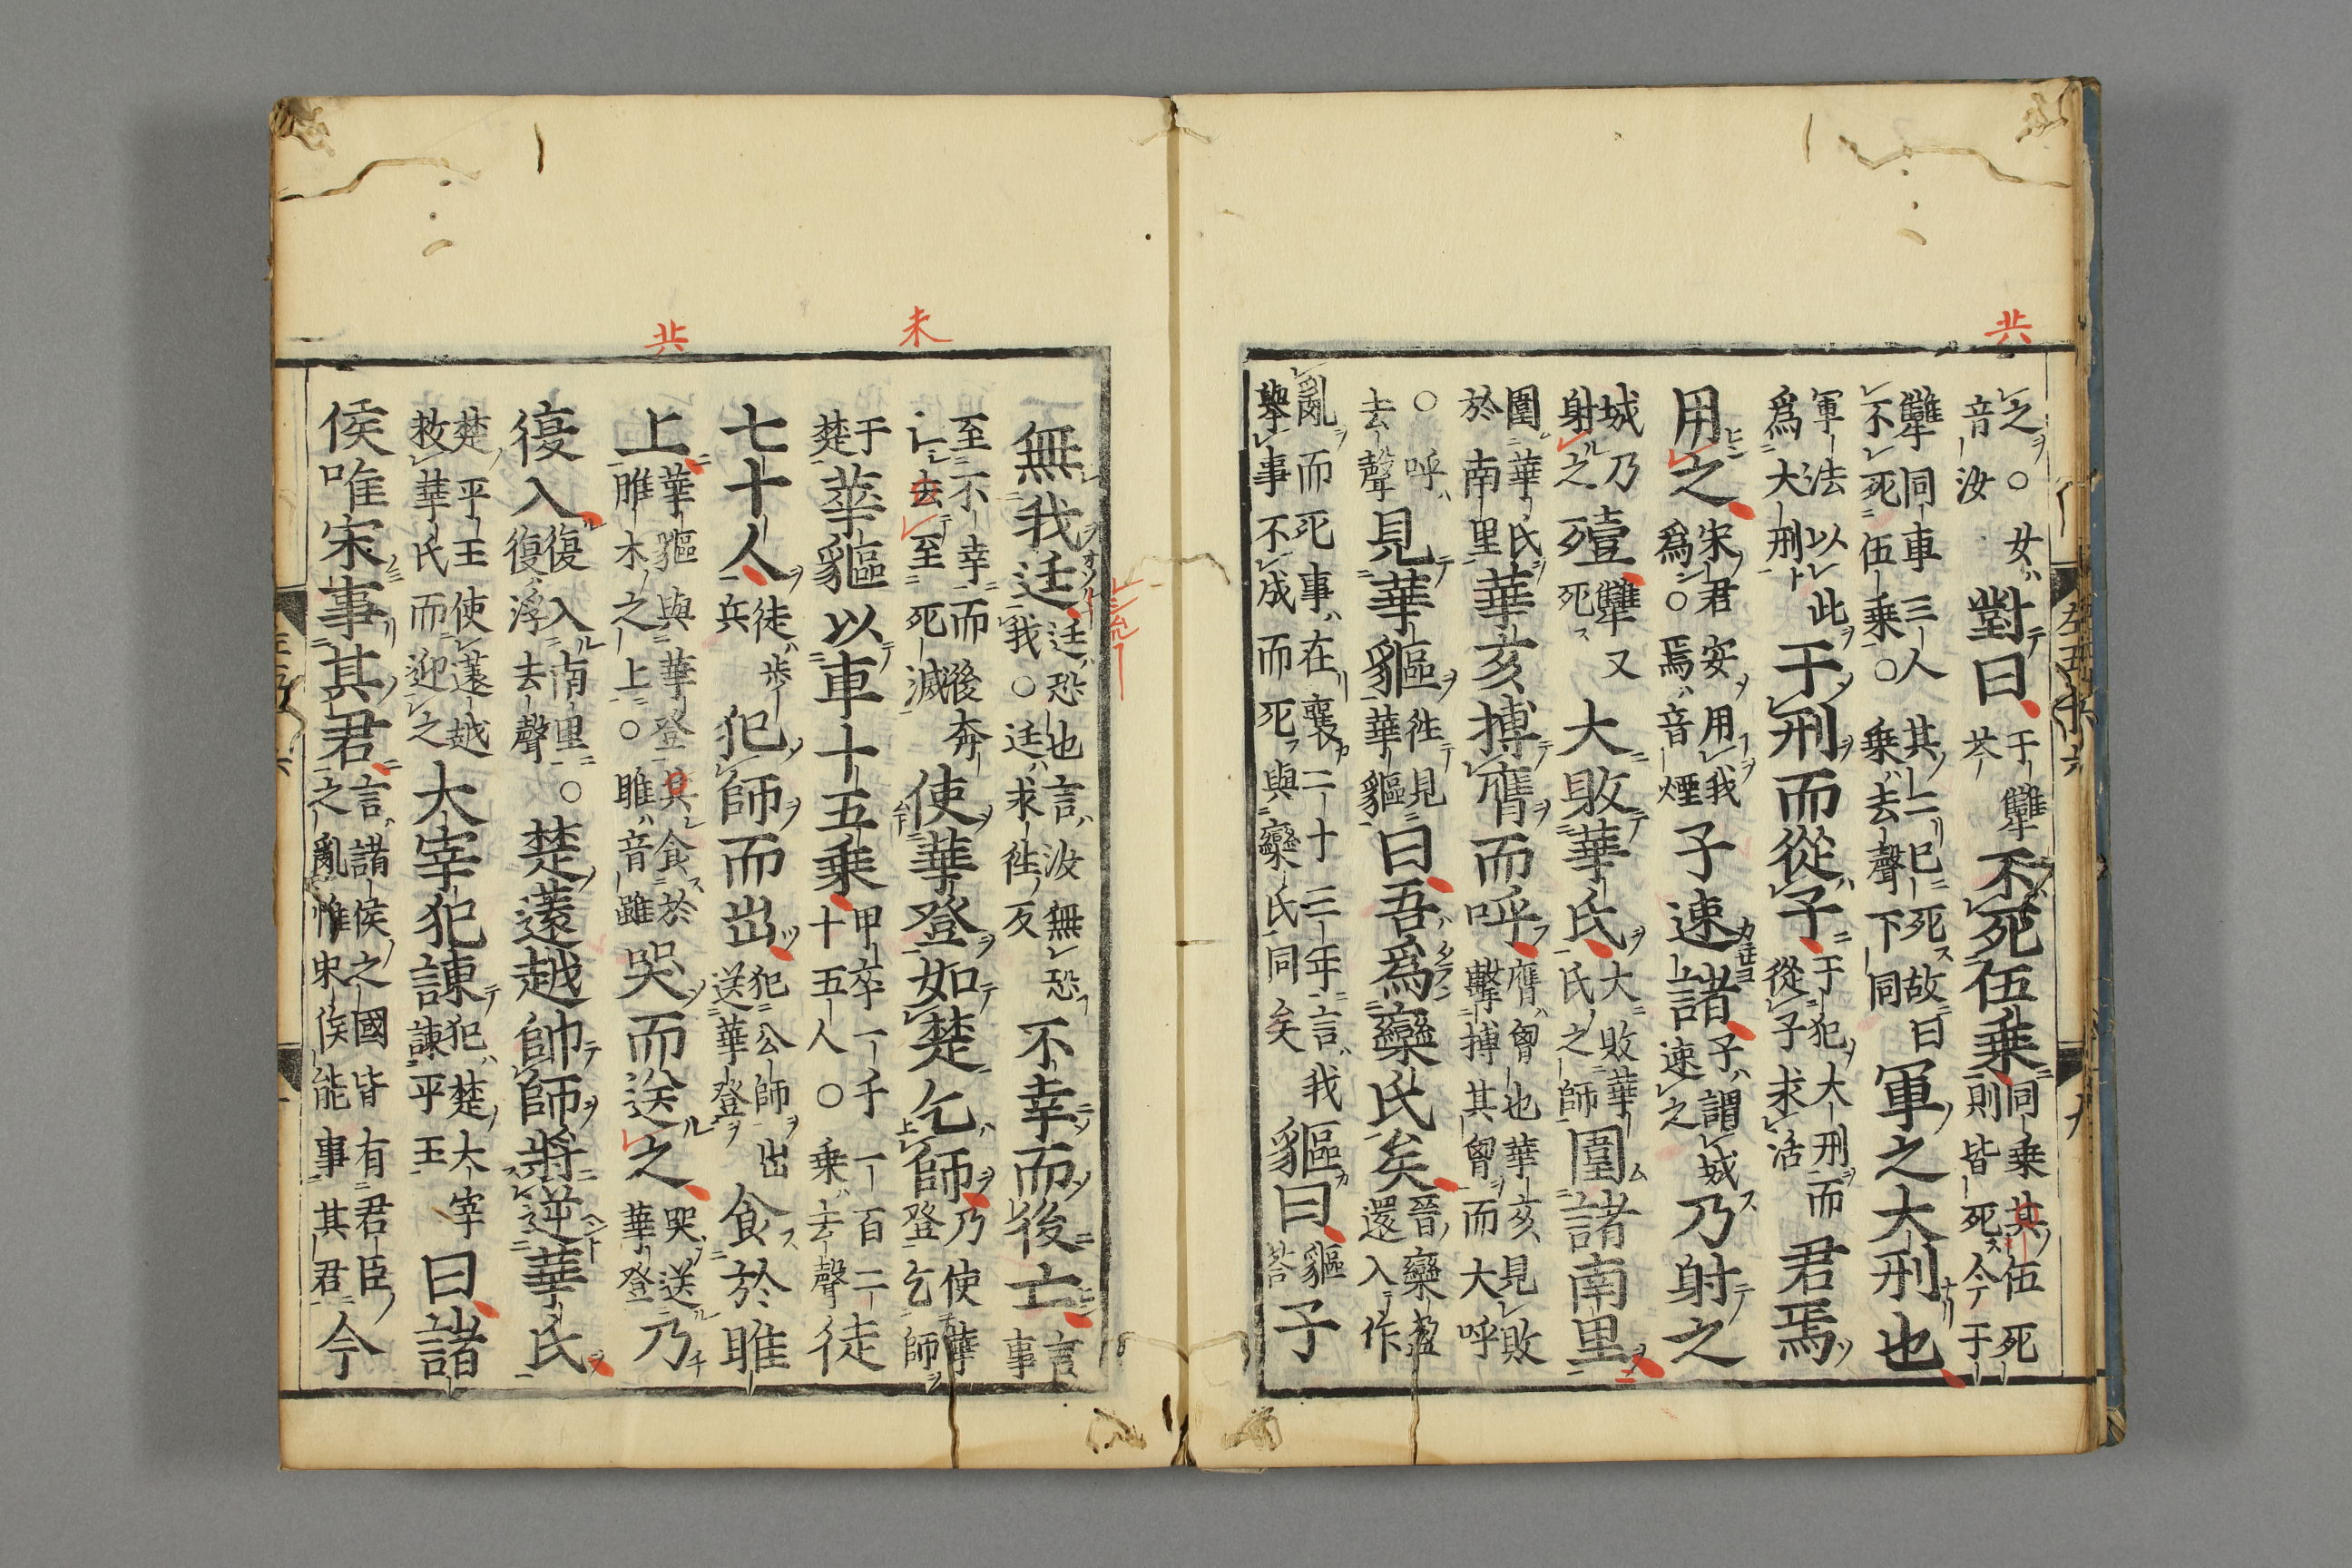 之○女對曰于犨不死伍乘同乘其伍死
音汝荅則皆死今于
犨同車三人其上二已死故曰軍之大刑也
不死伍乘○乘去聲下同
軍法以此干刑而從子于犯大刑而君焉
爲大刑從子求活
用之宋君安用我子速諸子謂城乃射之
爲○焉音煙速之
城乃殪犨又大敗華氏大敗華圍諸南里
射之死氏之師
圍華氏華亥搏膺而呼膺胷也華亥見敗
於南里擊搏其胷而大呼
○呼見華貙往見曰吾爲欒氏矣晉欒盈
去聲華貙還入作
亂而死事在襄二十三年言我貙曰貙子
舉事不成而死與欒氏同矣荅
無我迋迋恐也言汝無恐不幸而後亡言
我○迋求往反事
至不幸而後奔使華登如楚乞師乃使華
亡去至死滅登乞師
于華貙以車十五乘甲卒一千一百二徒
楚十五人○乘去聲
七十人徒步犯師而出犯公師出食於睢
兵送華登
上華貙與華登其食於哭而送之哭送乃
睢水之上○睢音雖華登
復入復入南里○楚薳越帥師將逆華氏
復浮去聲
楚平王使薳越大宰犯諫犯楚大宰曰諸
救華氏而迎之諫平王
侯唯宋事其君言諸侯之國皆有君臣今
之亂惟宋侯能事其君
共
未
共
左五十六
九